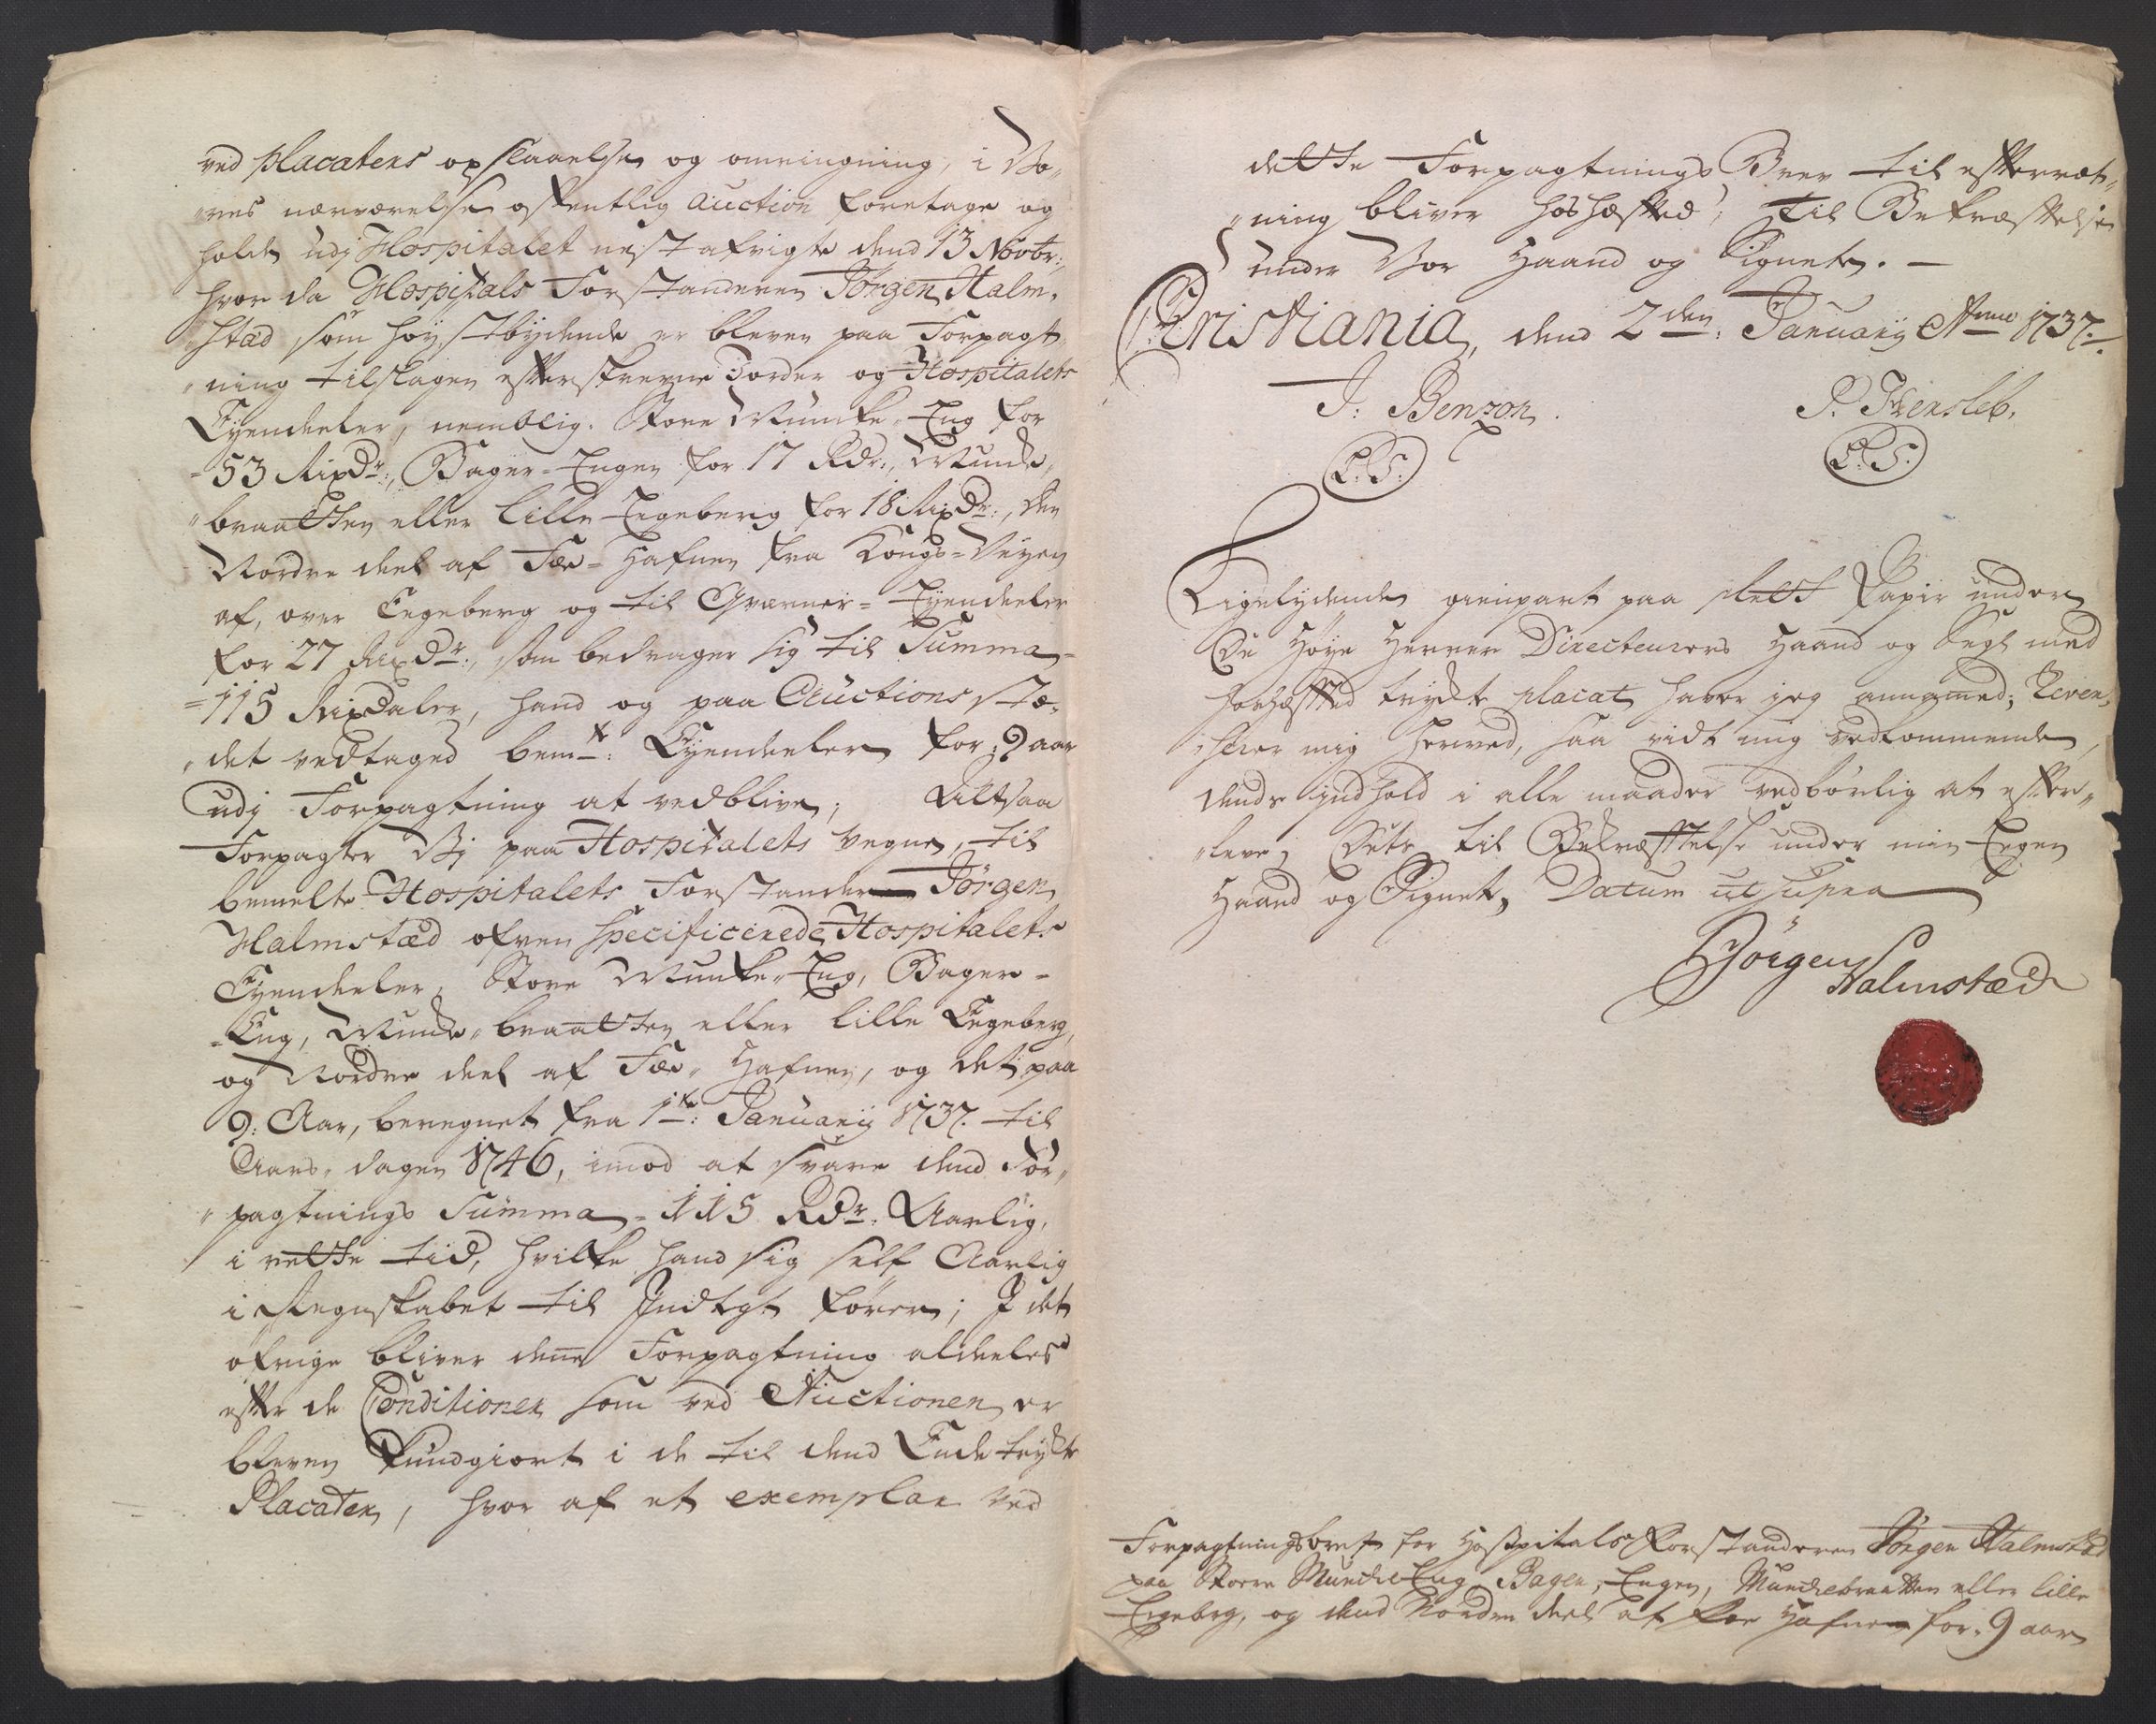 ved placaters opslaaelse og omringning, i Vo„
„res nærværelse offentlig Auction foretage og
holde udj Hospitalet nest afvigte dend 13 Novbr:,
hvor da Hospitals Forstanderen Jörgen Halm„
stæd som høystbydende er bleven paa Forpagt„
„ning tilslagen efterskrevne Jorder og Hospitalets
Eyendeeler, nemblig. Store Muncke-Eng for
53 Rixdr:, Bager-Engen for 17 Rdr:, Muncke„
„braatten eller Lille Egeberg for 18 Rixdr:, den
Nordre deel af Fæe-Hafnen fra Kongs-Veyen
af, over Eegeberg og til Grærner-Eyendeeler
for 27 Rixdr:, som bedrager sig til Summa=
=115 Rixdaler, hand og paa Auctions stæ„
„det vedtaged bemte: Eyendeeler for 9 aar
udj Forpagtning at vedblive; Altsaa
Forpagter Vj paa Hospitalets vegne, til
bemelte Hospitalets Forstander Jörgen
Halmstæd ofven Specificerede Hospitalets
Eyendeeler, Store Muncke-Eng, Bager=
=Eng, Muncke„braatten eller lille Eegeberg,
og Nordre deel af Fæe„Hafnen, og det paa
9: Aar, beregnet fra 1te: Januarij 1737. til
Aars„dagen 1746, imod at svare dend For„
„pagtnings Summa=115 Rdr: Aarlig,
i rette tiid, hvilke hand sig self Aarlig
i Regnskabet til Indtegt fører; I det
øfrige bliver denne Forpagtning aldeeles
efter de Conditioner som ved Auctionen er
bleven kundgiort i de til dend Ende trykte
Placater, hvor af et exemplar ved
dette Forpagtnings Brev til efterræt„
„ning bliver hoshæftet; Til Bekræftelse
under Vor Haand og Signeter.
Christiania, dend 2den: Januarij Anno 1737.
J: Benzon. P. Hersleb.
L.S. L.S.
Ligelydende gienpart paa slett Papir under
De Høye Herrer Directeurers Haand og Segl med
hoshæfted trykte placat haver jeg annammed; Rever„
„serer mig herved, saa vidt mig vedkommende,
dends indhold i alle maader vedbørlig at efter„
„leve; Dette til Bekræftelse under min Egen
Haand og Signet, Datum ut supra
Jörgen Halmstæd
Forpagtningsbref for Hospitals Forstanderen Jörgen Halmstæd
paa Store MunckeEng, Bager, Engen, Munckebraatten eller lille
Egeberg, og dend Nordre deel af Fæe Hafnen for 9 aar